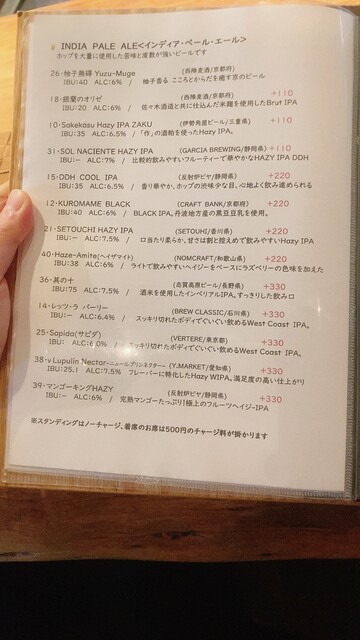 INDIA PALE ALE<インディア・ペール・エール>
ホップを大量に使用した苦味と度数が強いビールです
26・柚子無碍 Yuzu-Muge (西陣麦酒/京都府)
IBU:40 ALC:6% / 柚子香る こころとからだを癒す京のビール
18・銀蘭のオリゼ (西陣麦酒/京都府) +110
IBU:20 ALC:6% / 佐々木酒造と共に仕込んだ米麹を使用したBrut IPA
10・Sakekasu Hazy IPA ZAKU (伊勢角屋ビール/三重県) +110
IBU:35 ALC:6.5% / 「作」の酒粕を使ったHazy IPA。
31・SOL NACIENTE HAZY IPA (GARCIA BREWING/静岡県) +110
IBU:- ALC:7% / 比較的飲みやすいフルーティーで華やかなHAZY IPA DDH
15・DDH COOL IPA (反射炉ビヤ/静岡県) +220
IBU:35 ALC:6.5% / 香り華やか、ホップの渋味少な目、心地よく飲み進められる
12・KUROMAME BLACK (CRAFT BANK/京都府) +220
IBU:40 ALC:6% / BLACK IPA。丹波地方産の黒豆豆乳を使用。
21・SETOUCHI HAZY IPA (SETOUHI/香川県) +220
IBU:- ALC:7.5% / 口当たり柔らか、甘さは割と控えめで飲みやすいHazy IPA
40・Haze-Amite(ヘイザマイト) (NOMCRAFT/和歌山県) +220
IBU:38 ALC:6% / ライトで飲みやすいヘイジーをベースにラズベリーの色味を加えた
36・其の十 (志賀高原ビール/長野県) +330
IBU:75 ALC:7.5% / 酒米を使用したインペリアルIPA。すっきりした飲み口
14・レッツ・ラ パーリー (BREW CLASSIC/石川県) +330
IBU:- ALC:6.4% / スッキリ切れたボディでぐいぐい飲めるWest Coast IPA。
25・Sapida(サピダ) (VERTERE/東京都) +330
IBU: ALC:6.0% / スッキリ切れたボディでぐいぐい飲めるWest Coast IPA。
38・ν Lupulin Nectar-ニュールプリンネクター- (Y.MARKET/愛知県) +330
IBU:25.1 ALC:7.5% フレーバーに特化したHazy WIPA。満足度の高い仕上がり
39・マンゴーキングHAZY (反射炉ビヤ/静岡県) +330
IBU:- ALC:6% / 完熟マンゴーたっぷり!極上のフルーツヘイジーIPA
※スタンディングはノーチャージ、着席のお席は500円のチャージ料が掛かります